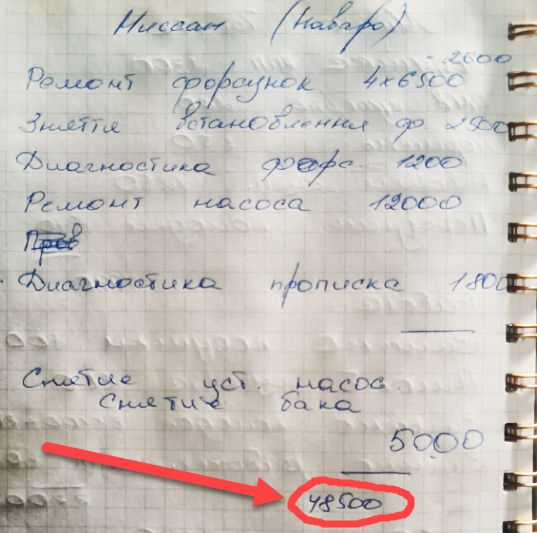 Ниссан (Навара)
2600
Ремонт форсунок 4х6500
Зняття встановлення ф. 2500
Диагностика форс. 1200
Ремонт насоса 12000
Диагностика прописка 1800
Снятие уст. насос.
Снятие бака
5000
48500